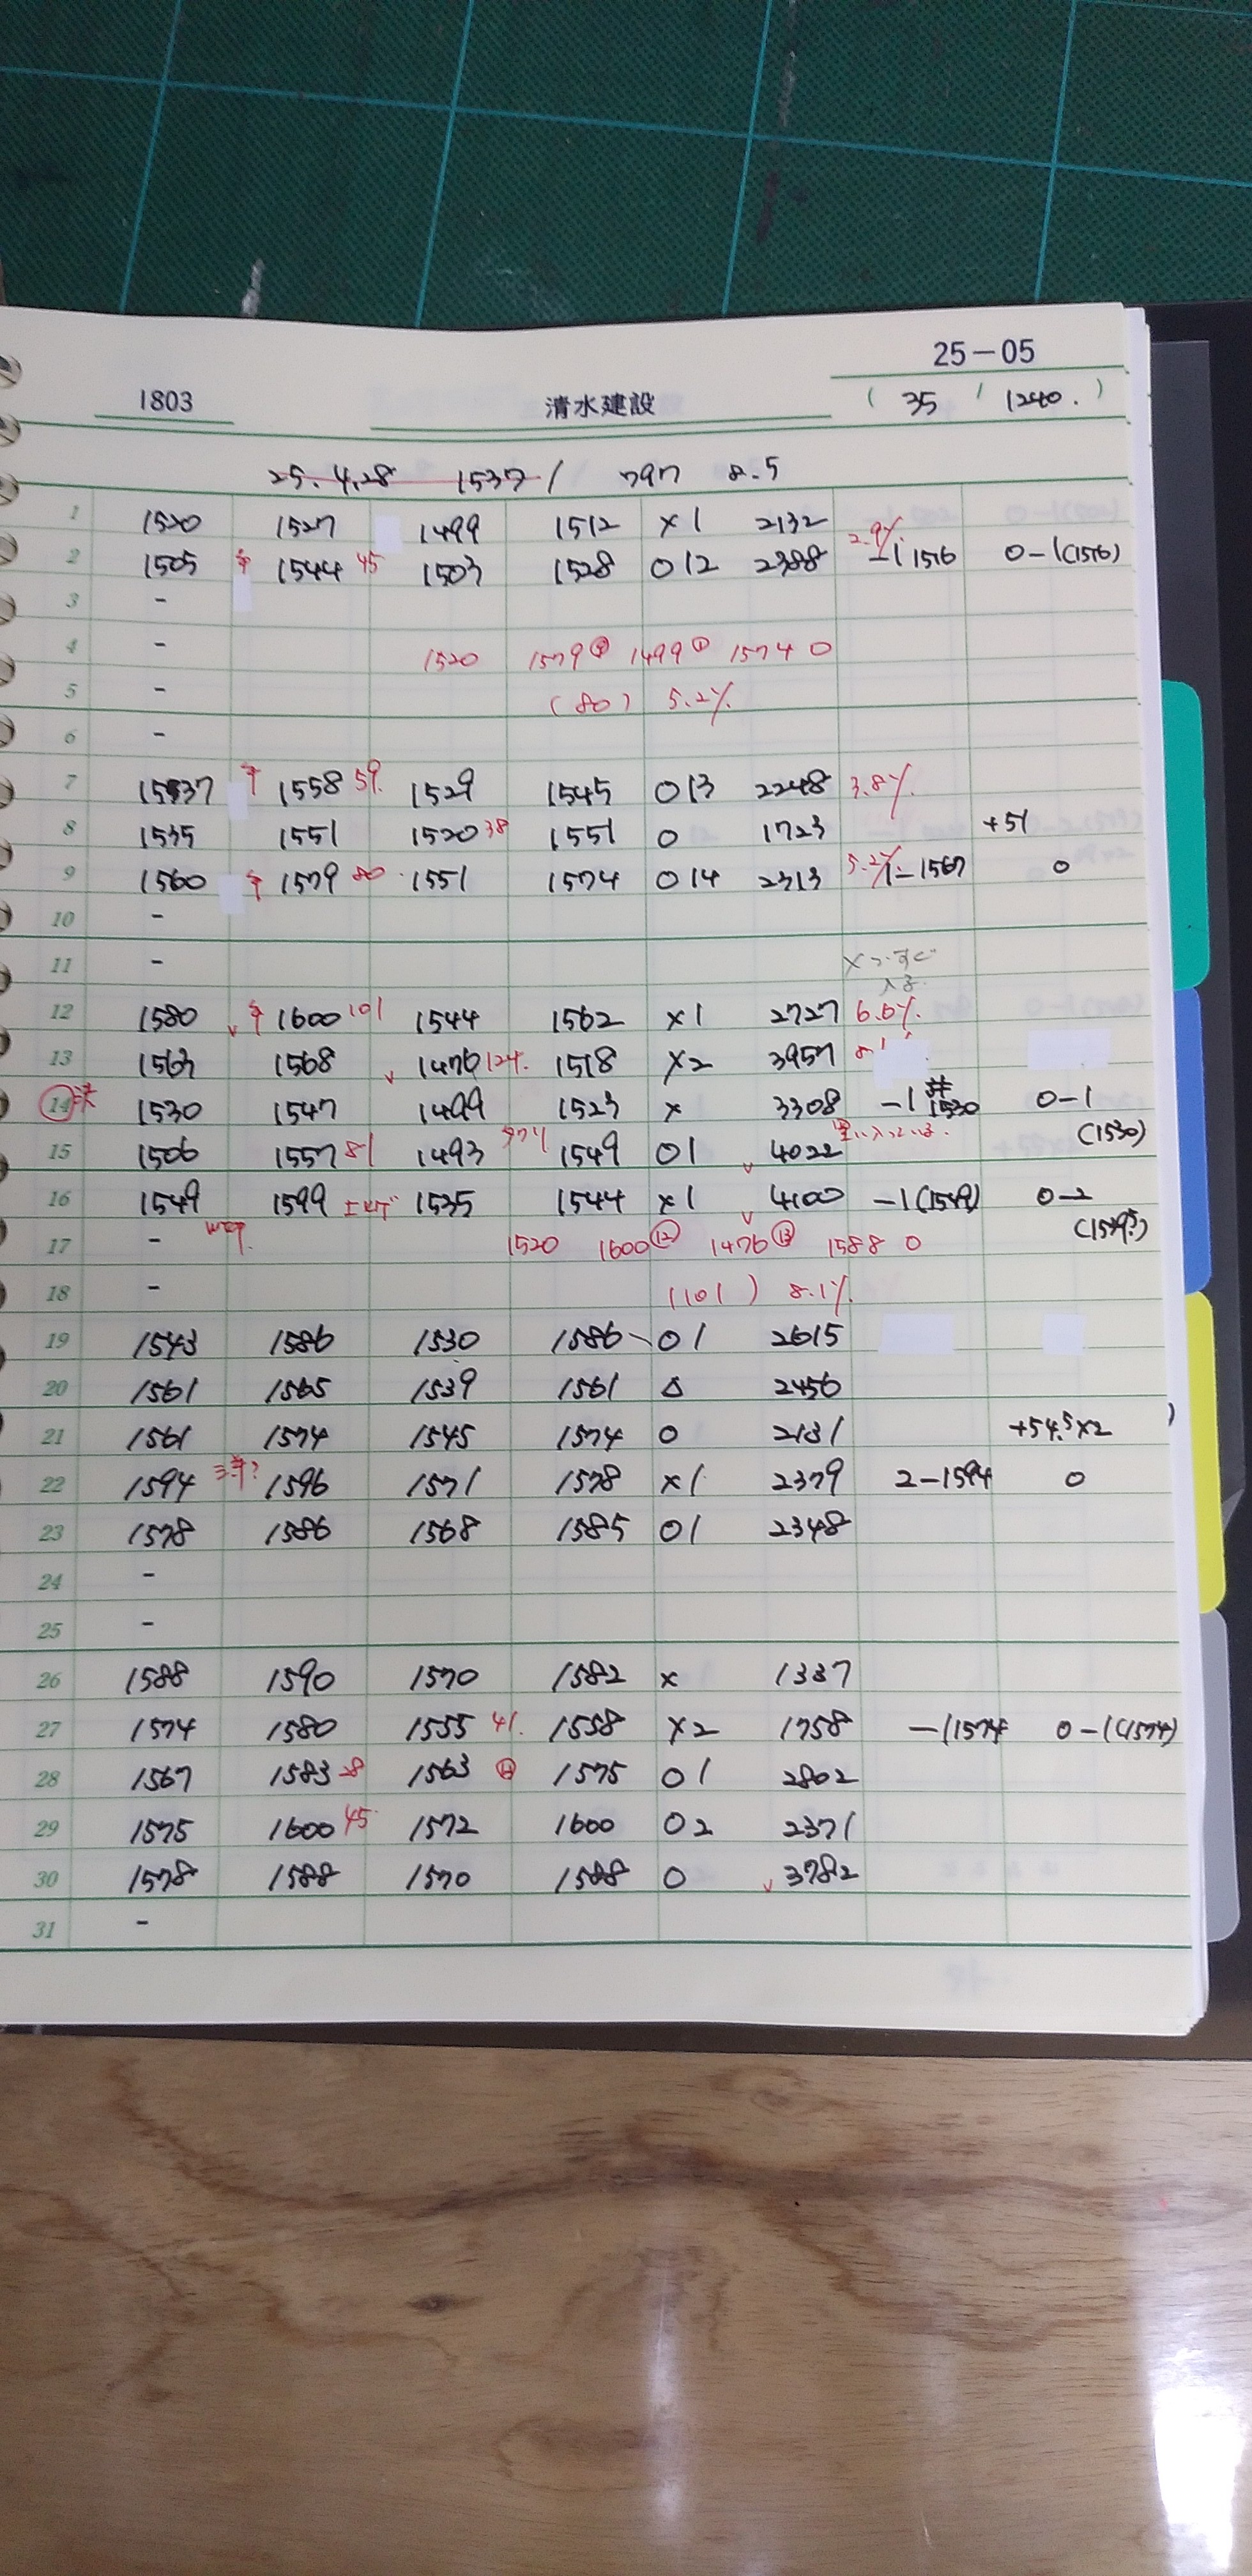 25-05
1803 清水建設 ( 35 / 1240. )
25.4.28 1537 / 797 8.5
1 1520 1527 1499 1512 ×1 2132 2.9%
2 1505 1544 45 1503 1528 012 2388 -1 1516 0-1(1516)
3 -
4 - 1520 1579⑨ 1499① 1574 0
5 - (80) 5.2%
6 -
7 1537 1558 59. 1529 1545 013 2248 3.8%
8 1535 1551 1520 38 1551 0 1723 +51
9 1560 1579 80 1551 1574 014 2313 5.2% 1-1567 0
10 -
11 -
12 1580 1600 101 1544 1562 ×1 2727 6.6%
13 1563 1568 1476 124. 1518 ×2 3957 8.1
14 決 1530 1547 1499 1523 × 3308 -1 1530 0-1
(1530)
15 1506 1557 81 1493 1549 01 4022
16 1549 1599 1535 1544 ×1 4100 -1(1549) 0-2
17 - 1520 1600⑫ 1476⑬ 1588 0
18 - (101) 8.1%
19 1543 1586 1530 1586 01 2615
20 1561 1565 1539 1561 △ 2456
21 1561 1574 1545 1574 0 2131 +54.5×2
22 1594 1596 1571 1578 ×1 2379 2-1594 0
23 1578 1586 1568 1585 01 2348
24 -
25 -
26 1588 1590 1570 1582 × 1337
27 1574 1580 1555 41. 1558 ×2 1758 -1 1574 0-1(1574)
28 1567 1583 28 1563 1575 01 2802
29 1575 1600 45 1572 1600 02 2371
30 1578 1588 1570 1588 0 3782
31 -